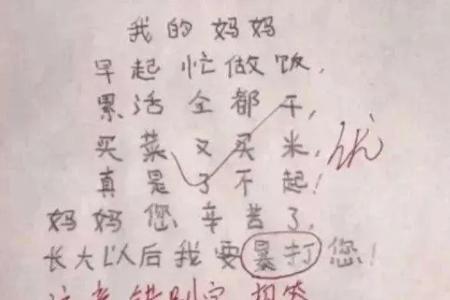 我的妈妈
早起忙做饭，
累活全都干，
买菜又买米，
优
真是了不起！
妈妈您辛苦了，
长大以后我要暴打您！
注意错别字